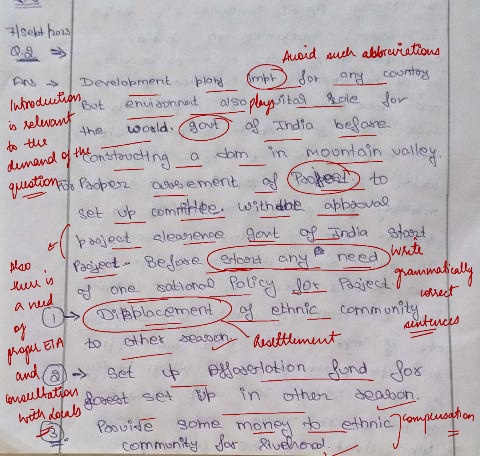 7/Sept/2023
Q.2 ⇒
Avoid such abbreviations
Ans → Development play impt for any country
Introduction is relevant to the demand of the question
But environment also plays vital role for
the world. govt of India before
constructing a dam in mountain valley.
For Proper assement of Project to
set up committee. with the approval
project clearence govt of India start
Project. Before start any need
Write grammatically correct sentences
of one national Policy for Project
Also there is a need of proper EIA and consultation with locals
① → Displacement of ethnic community
to other season
Resettlement
② → Set up Afforestation fund for
forest set up in other season.
③ Provide some money to ethnic
community for livehood.
compensation